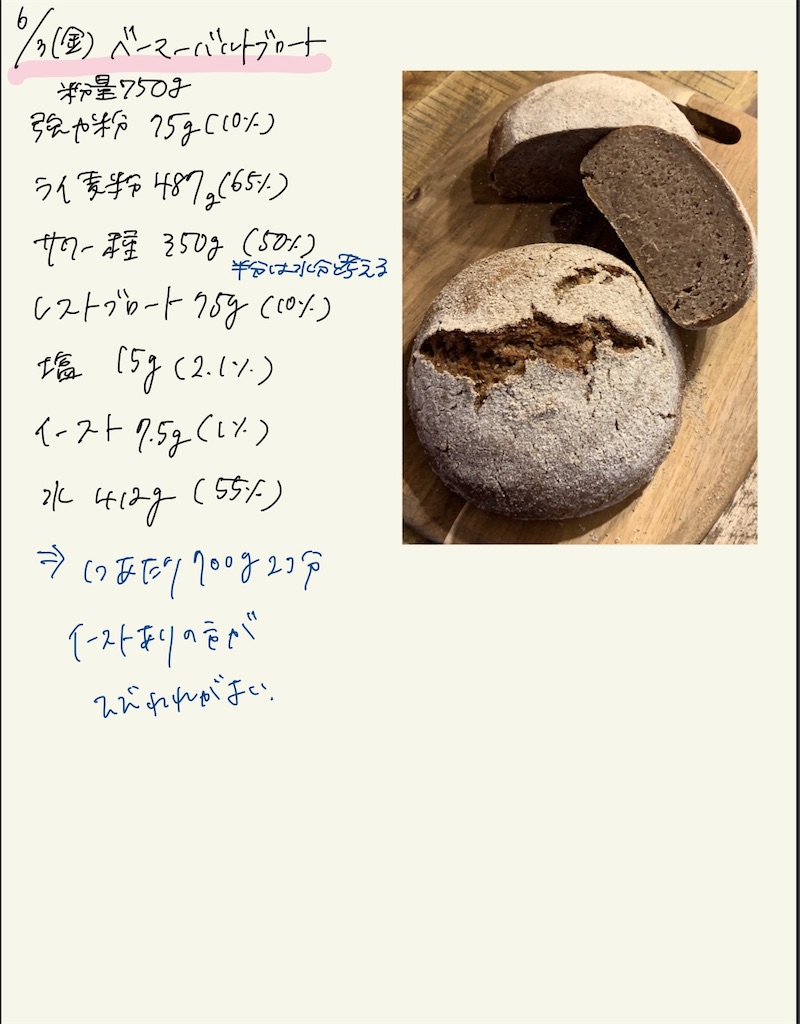 6/3(金) ベーマーバルトブロート
粉量750g
強力粉 75g(10%)
ライ麦粉 487g(65%)
サワー種 350g (50%)
半分は水分と考える
レストブロート 75g (10%)
塩 15g (2.1%)
イースト 7.5g (1%)
水 412g (55%)
⇒ 1つあたり700g2コ分
イーストありの方が
ひびわれがよい.